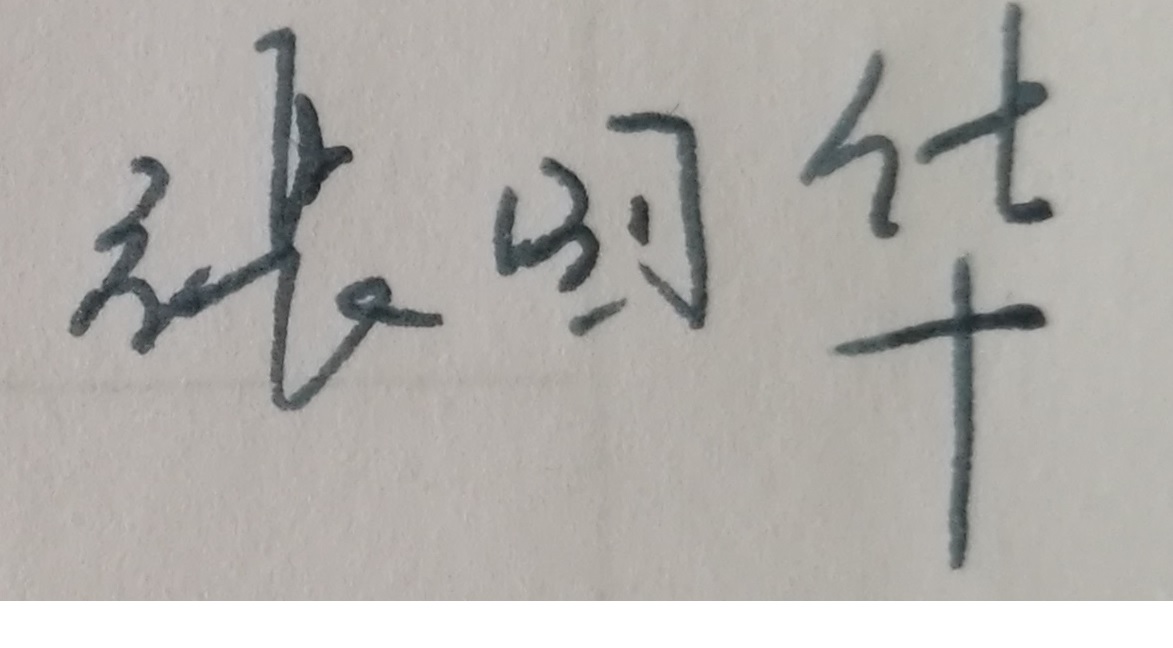 张明华